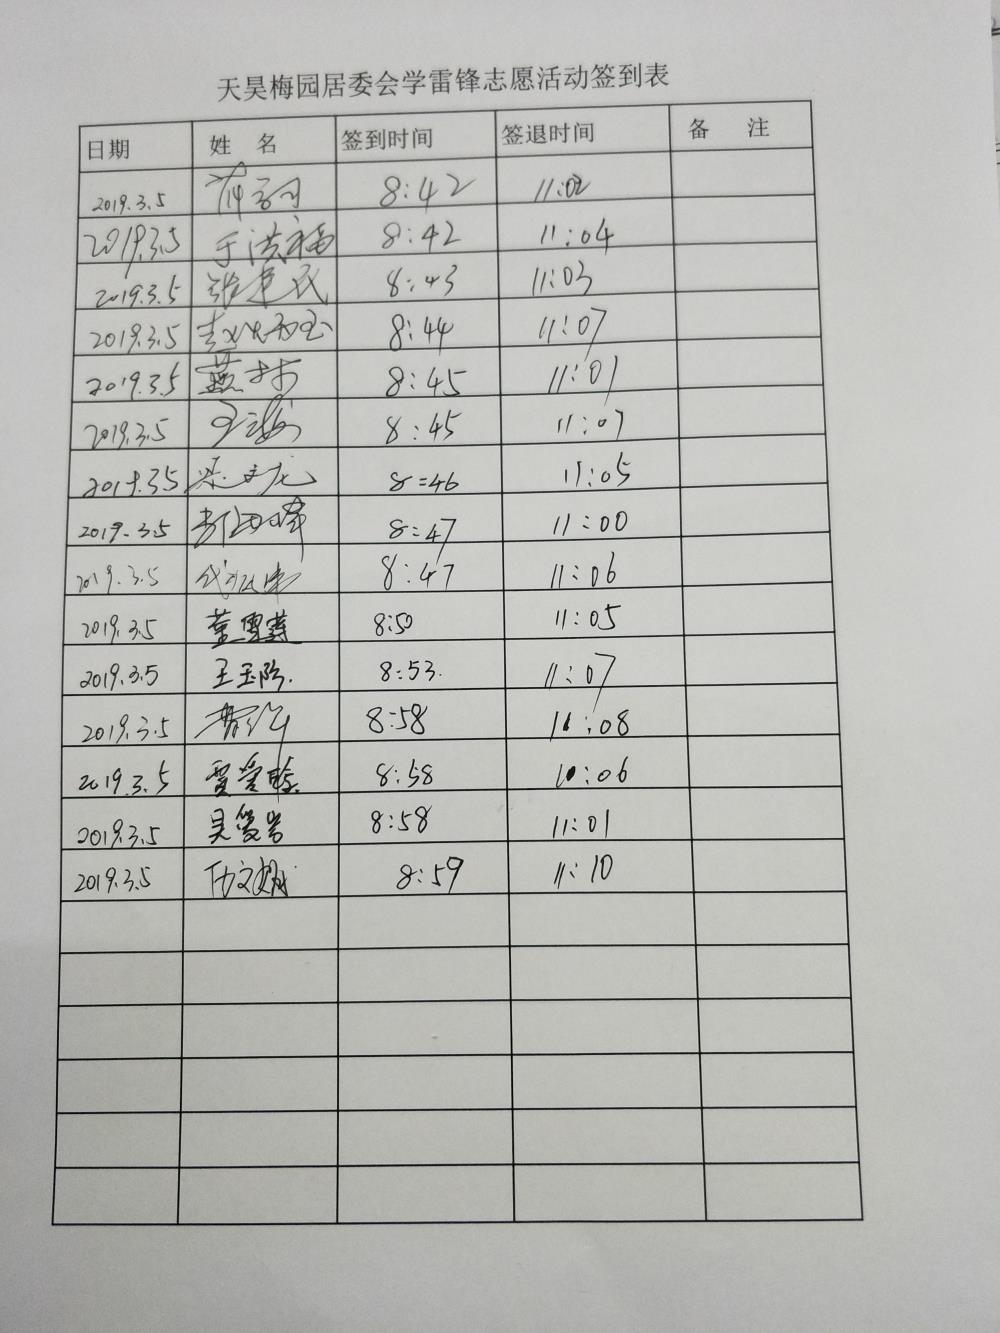 天昊梅园居委会学雷锋志愿活动签到表
日期 姓名 签到时间 签退时间 备注
2019.3.5 8:42 11:02
2019.3.5 于洪福 8:42 11:04
2019.3.5 张建民 8:43 11:03
2019.3.5 8:44 11:07
2019.3.5 8:45 11:01
2019.3.5 8:45 11:07
2019.3.5 梁文龙 8:46 11:05
2019.3.5 8:47 11:00
2019.3.5 8:47 11:06
2019.3.5 董雪莲 8:50 11:05
2019.3.5 王玉珍. 8:53. 11:07
2019.3.5 8:58 11:08
2019.3.5 8:58 10:06
2019.3.5 8:58 11:01
2019.3.5 8:59 11:10